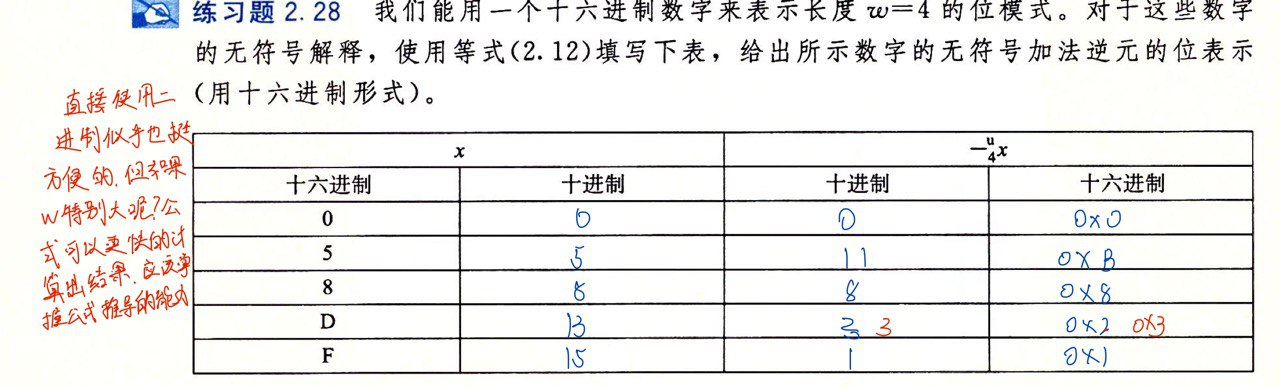 练习题 2.28 我们能用一个十六进制数字来表示长度 w=4 的位模式。对于这些数字
的无符号解释，使用等式(2.12)填写下表，给出所示数字的无符号加法逆元的位表示
(用十六进制形式)。
直接使用二
进制似乎也挺
方便的,但如果
w特别大呢?公
式可以更快的计
算出结果.应该掌
握公式推导的能力
x -ᵤ₄x
十六进制 十进制 十进制 十六进制
0 0 0 0x0
5 5 11 0xB
8 8 8 0x8
D 13 3 0x2 0x3
F 15 1 0x1